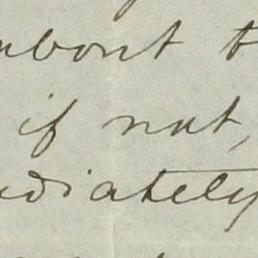 about t
if not,
ediately